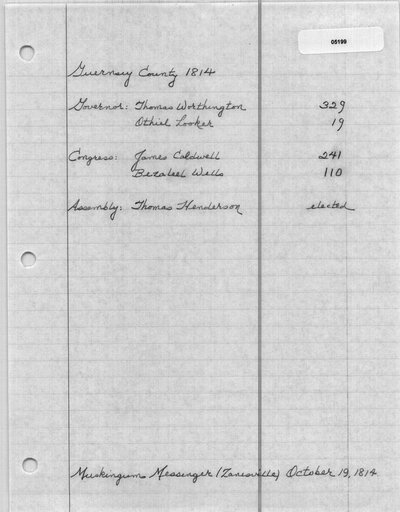 05199
Guernsey County 1814
Governor: Thomas Worthington 329
Othiel Looker 19
Congress: James Caldwell 241
Bezaleel Wells 110
Assembly: Thomas Henderson elected
Muskingum Messenger (Zanesville) October 19, 1814